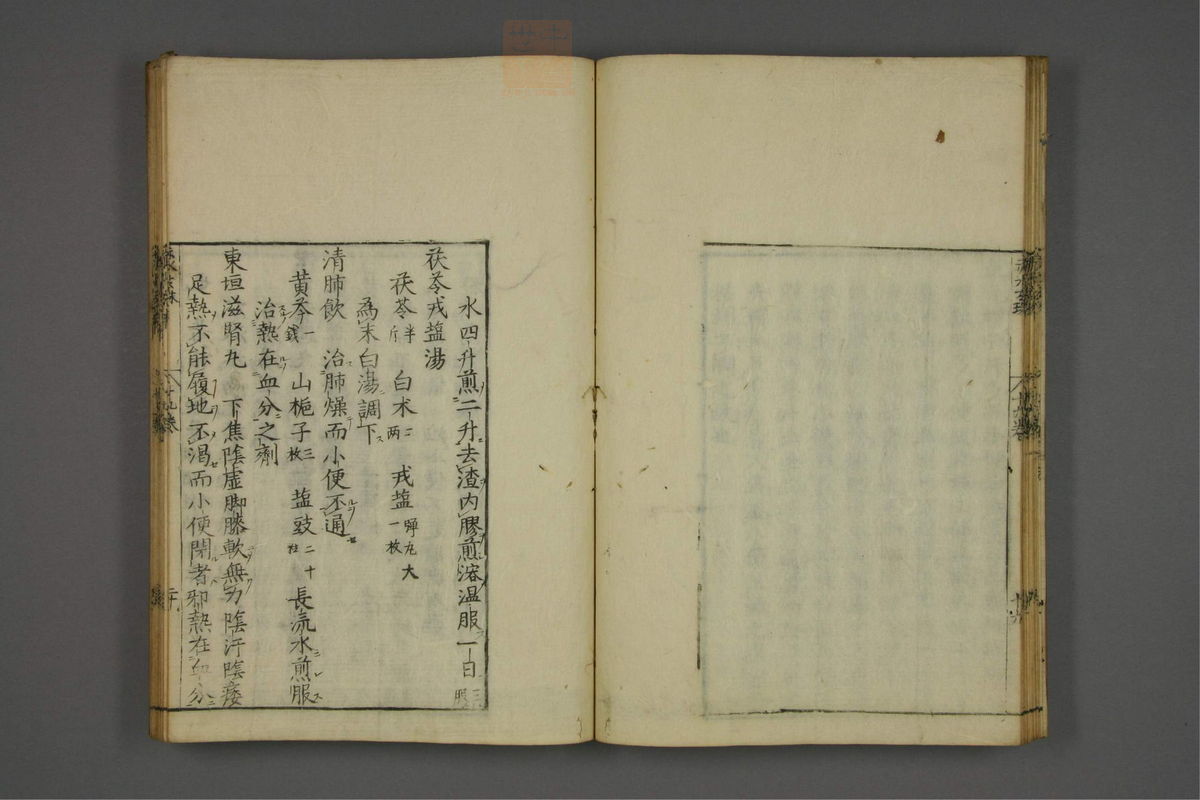 水四升煎二升去渣内膠煎溶温服一日三服
茯苓戎盐湯
茯苓半斤 白术二两 戎盐弾丸大一枚
為末白湯調下
清肺飲 治肺燥而小便不通
黄芩一錢 山梔子三枚 盐豉二十粒 長流水煎服
治熱在血分之劑
東垣滋腎丸 下焦陰虚脚膝軟無力陰汗陰痿
足熱不能履地不渇而小便閉者邪熱在血分